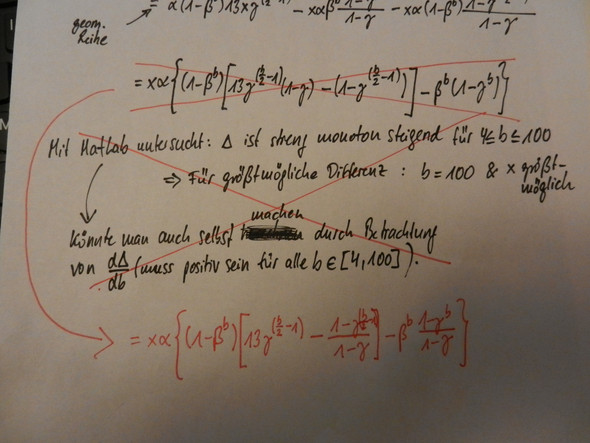 geom.
Reihe
= α(1-β^b)13xγ^(b/2-1) - xαβ^b (1-γ^b)/(1-γ) - xα(1-β^b) /(1-γ)
= xα{(1-β^b)[13γ^(b/2-1)(1-γ) - (1-γ^(b/2-1))] - β^b(1-γ^b)}
Mit Matlab untersucht: Δ ist streng monoton steigend für 4≤b≤100
⇒ Für größtmögliche Differenz : b=100 & x größt-
möglich
machen
Könnte man auch selbst durch Betrachtung
von dΔ/db (muss positiv sein für alle b∈[4,100]).
= xα{(1-β^b)[13γ^(b/2-1) - (1-γ^(b/2-1))/(1-γ)] - β^b (1-γ^b)/(1-γ)}